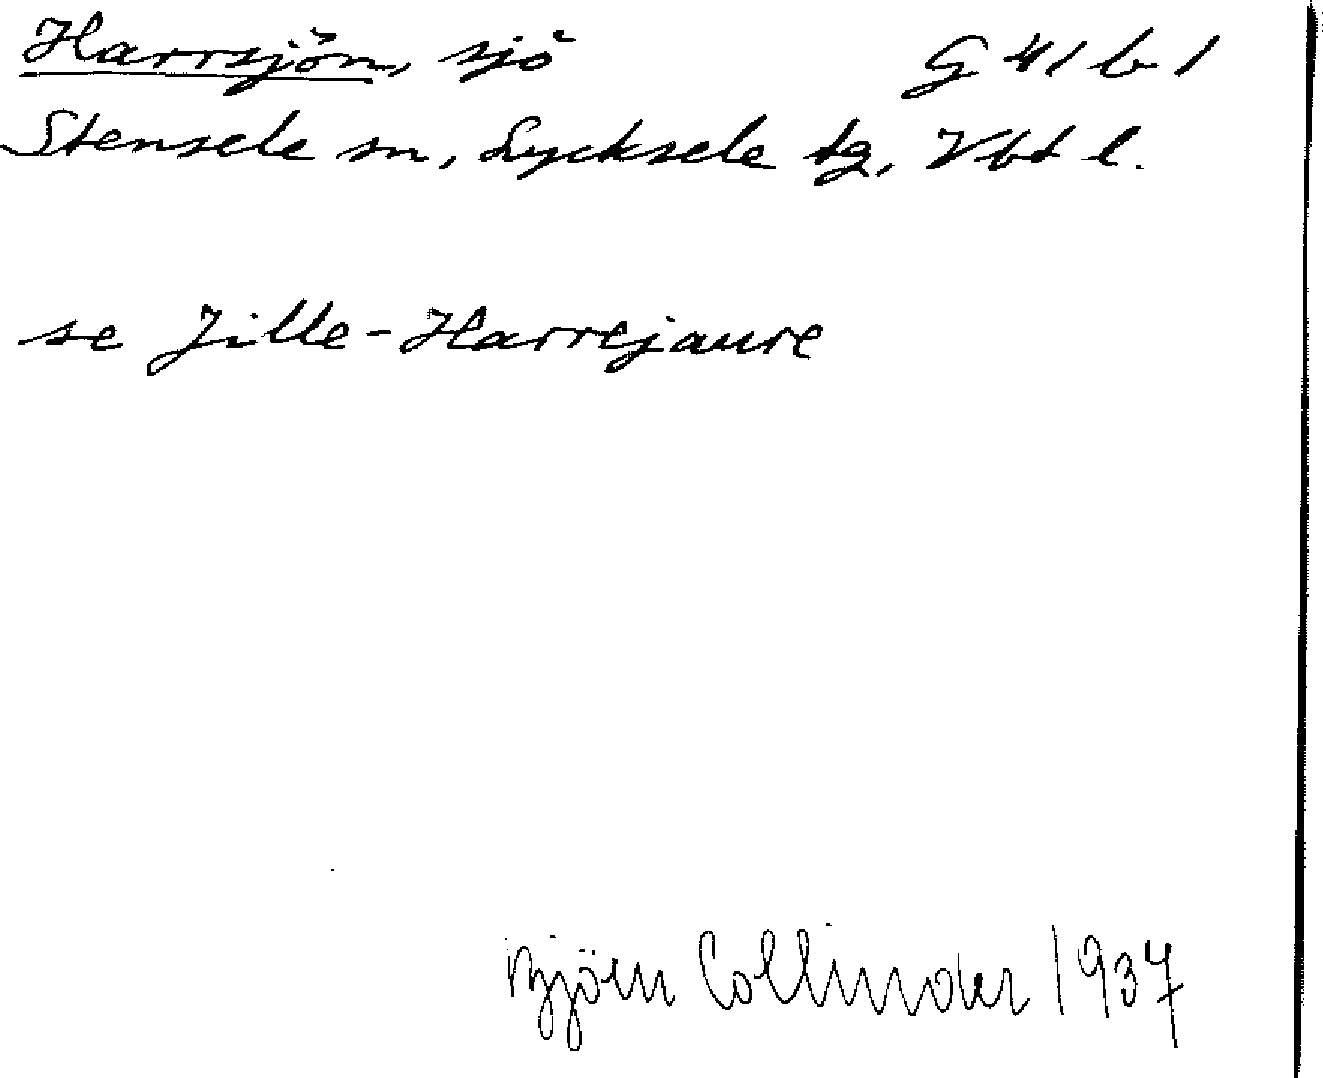 Harrsjön, sjö G 41 b 1
Stensele sn, Lycksele tg, Vbt l.
se Jille-Harrejaure
Björn Collinder 1937